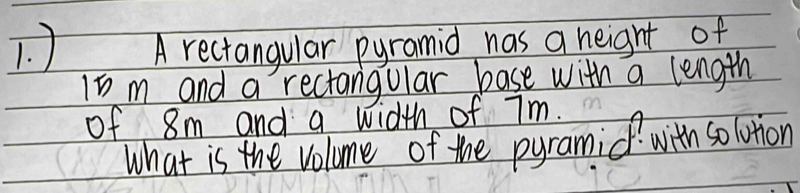 1.) A rectangular pyramid has a height of
15 m and a rectangular base with a length
of 8m and a width of 7m.
What is the volume of the pyramid? with solution